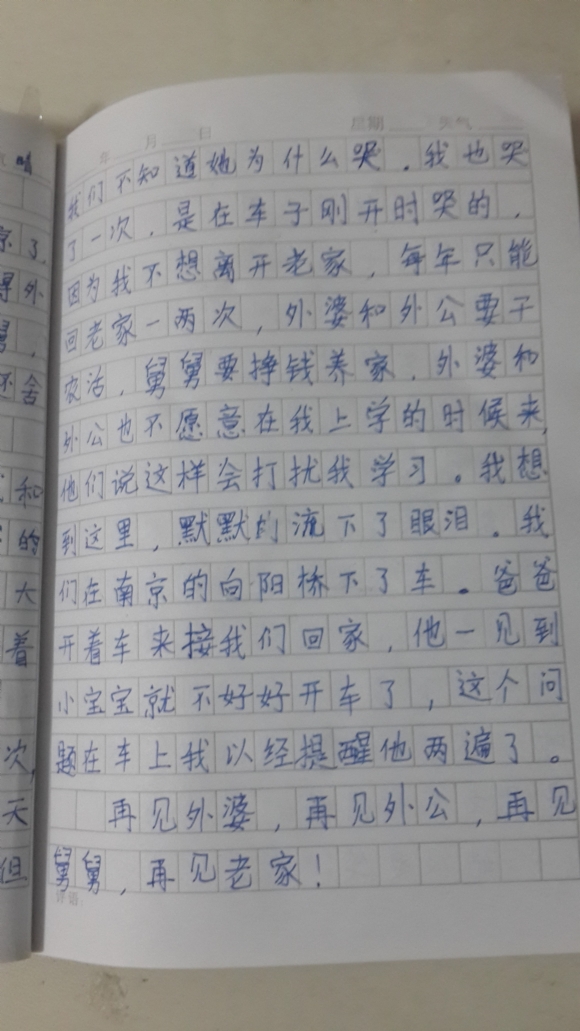 年 月 日 星期 天气
我们不知道她为什么哭．我也哭
了一次，是在车子刚开时哭的，
因为我不想离开老家，每年只能
回老家一两次，外婆和外公要干
农活，舅舅要挣钱养家，外婆和
外公也不愿意在我上学的时候来，
他们说这样会打扰我学习。我想
到这里，默默的流下了眼泪。我
们在南京的向阳桥下了车。爸爸
开着车来接我们回家，他一见到
小宝宝就不好好开车了，这个问
题在车上我以经提醒他两遍了。
再见外婆，再见外公，再见
舅舅，再见老家！
评语